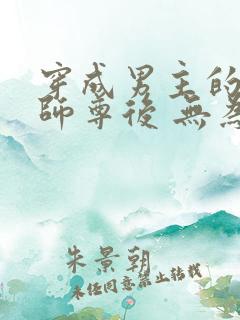 穿成男主的
師尊後 無為
朱景朝
未經同意禁止轉載